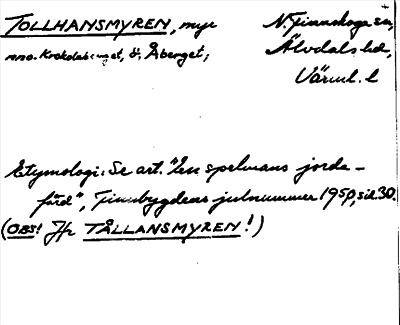 TOLLHANSMYREN, myr N. Finnskoga sn,
nno. Krokolaberget, ö. Åberget; Älvdals hd,
Värml. l
Etymologi: Se art. "En spelmans jorda-
färd", Finnbygdens julnummer 1950, sid. 30.
(OBS! Jfr TÅLLANSMYREN!)